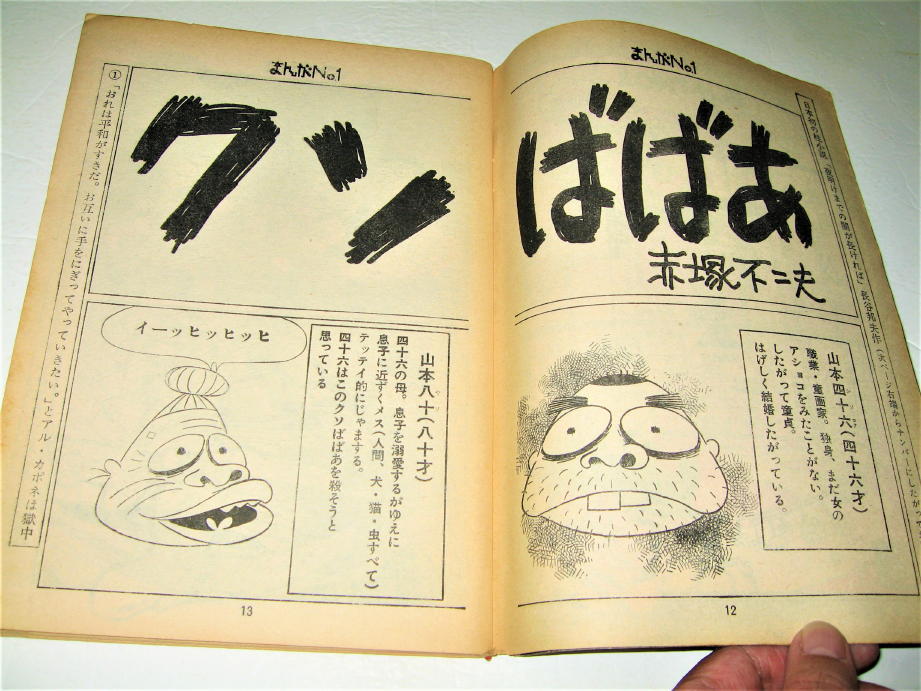 まんがNo.1
クソばばあ
赤塚不二夫
日本初の柱小説「夜明けまでの闇が長ければ」長谷邦夫作（次ページ右端からナンバーにしたがっ
山本四十六（四十六才）
職業・童画家。独身、まだ女の
アソコをみたことがない。
したがって童貞。
はげしく結婚したがっている。
12
まんがNo.1
山本八十（八十才）
四十六の母。息子を溺愛するがゆえに
息子に近ずくメス（人間、犬・猫・虫すべて）
テッテイ的にじゃまする。
四十六はこのクソばばあを殺そうと
思っている
イーッヒッヒッヒ
①「おれは平和がすきだ。お互いに手をにぎってやっていきたい。」とアル・カポネは獄中
13